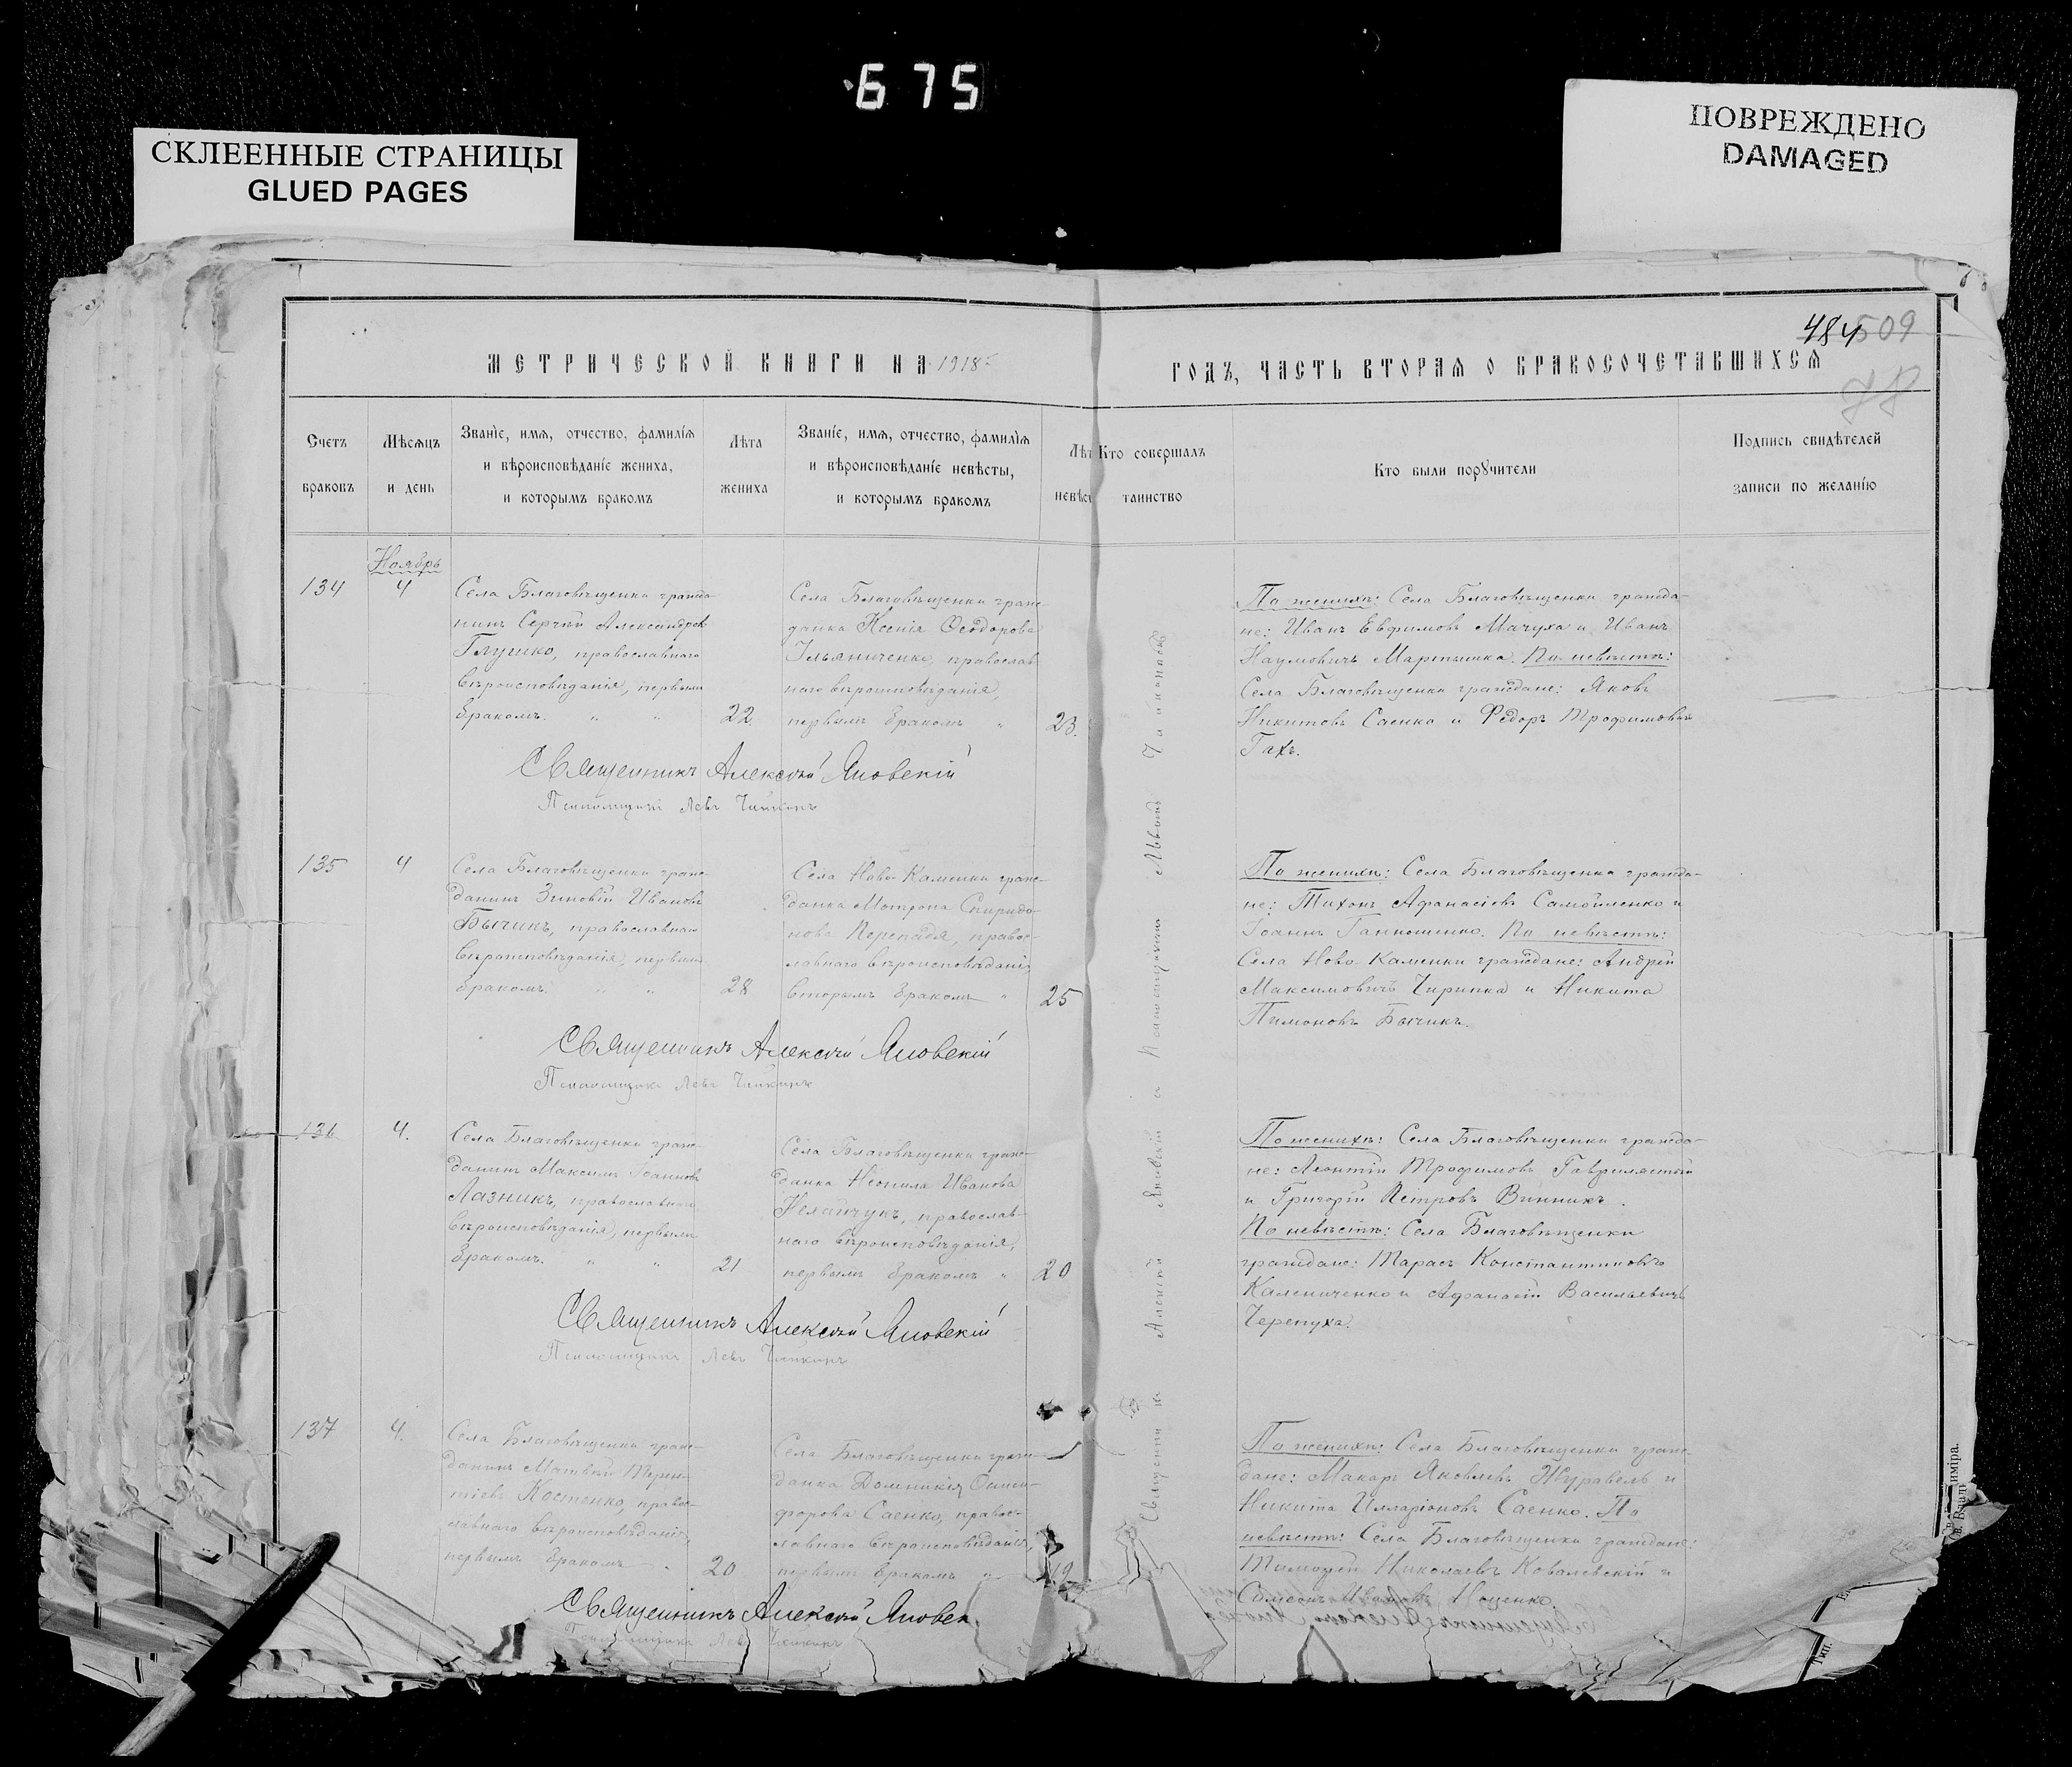 675
СКЛЕЕННЫЕ СТРАНИЦЫ
GLUED PAGES
ПОВРЕЖДЕНО
DAMAGED
484 509
78
МЕТРИЧЕСКОЙ КНИГИ НА 1918 ГОДЪ, ЧАСТЬ ВТОРАЯ О БРАКОСОЧЕТАВШИХСЯ
Счетъ
браковъ
Мѣсяцъ
и день
Званіе, имя, отчество, фамилія
и вѣроисповѣданіе жениха,
и которымъ бракомъ
Лѣта
жениха
Званіе, имя, отчество, фамилія
и вѣроисповѣданіе невѣсты,
и которымъ бракомъ
Лѣт
невѣс
Кто совершалъ
таинство
Кто были поручители
Подпись свидѣтелей
записи по желанію
Ноябрь
134
4
Села Благовѣщенки гражда-
нинъ Сергій Александровъ
Глушко, православнаго
вѣроисповѣданія, первымъ
бракомъ. " "
22.
Села Благовѣщенки граж-
данка Ксенія Феодорова
Ильяниченко, православ-
наго вѣроисповѣданія,
первымъ бракомъ "
23.
По женихѣ: Села Благовѣщенки гражда-
не: Иванъ Евфимовъ Мачуха и Иванъ
Наумовичъ Мартынка. По невѣстѣ:
Села Благовѣщенки граждане: Яковъ
Никитовъ Саенко и Федоръ Трофимовичъ
Гахъ.
Священникъ Алексѣй Яновскій
Псаломщикъ Левъ Чайкинъ
135
4
Села Благовѣщенки граж-
данинъ Зиновій Ивановъ
Бычикъ, православнаго
вѣроисповѣданія, первымъ
бракомъ. " "
28
Села Ново-Каменки граж-
данка Мотрона Спиридо-
нова Перепадя, правос-
лавнаго вѣроисповѣданія,
вторымъ бракомъ "
25
По женихѣ: Села Благовѣщенки гражда-
не: Тихонъ Афанасіевъ Самойленко и
Іоаннъ По невѣстѣ:
Села Ново-Каменки граждане: Андрей
Максимовичъ Чирипка и Никита
Пимоновъ Бычикъ.
Священникъ Алексѣй Яновскій
Псаломщикъ Левъ Чайкинъ
136
4.
Села Благовѣщенки граж-
данинъ Максимъ Іоанновъ
Лазникъ, православнаго
вѣроисповѣданія, первымъ
бракомъ. " "
21
Села Благовѣщенки граж-
данка Неонила Иванова
православ-
наго вѣроисповѣданія,
первымъ бракомъ "
20
По женихѣ: Села Благовѣщенки гражда-
не: Леонтій Трофимовъ
и Григорій Петровъ Винникъ.
По невѣстѣ: Села Благовѣщенки
граждане: Тарасъ Константиновъ
Калениченко и Афанасій Васильевичъ
Черепуха.
Священникъ Алексѣй Яновскій
Псаломщикъ Левъ Чайкинъ
137
4.
Села Благовѣщенки граж-
данинъ Матвѣй Терен-
тіевъ Костенко, правос-
лавнаго вѣроисповѣданія,
первымъ бракомъ
20
Села Благовѣщенки граж-
данка Домникія Ониси-
форова Саенко, правос-
лавнаго вѣроисповѣданія,
первымъ бракомъ "
19
По женихѣ: Села Благовѣщенки граж-
дане: Макаръ Яковлевъ Журавель и
Никита Илларіоновъ Саенко. По
невѣстѣ: Села Благовѣщенки граждане:
Тимофей Николаевъ Ковалевскій и
Симеонъ Ивановъ Ноценко.
Священникъ Алексѣй Яновск
Псаломщикъ Левъ Чайкинъ
Священникъ Алексѣй Яновскій съ Псаломщикомъ Львомъ Чайкинымъ
Тип.